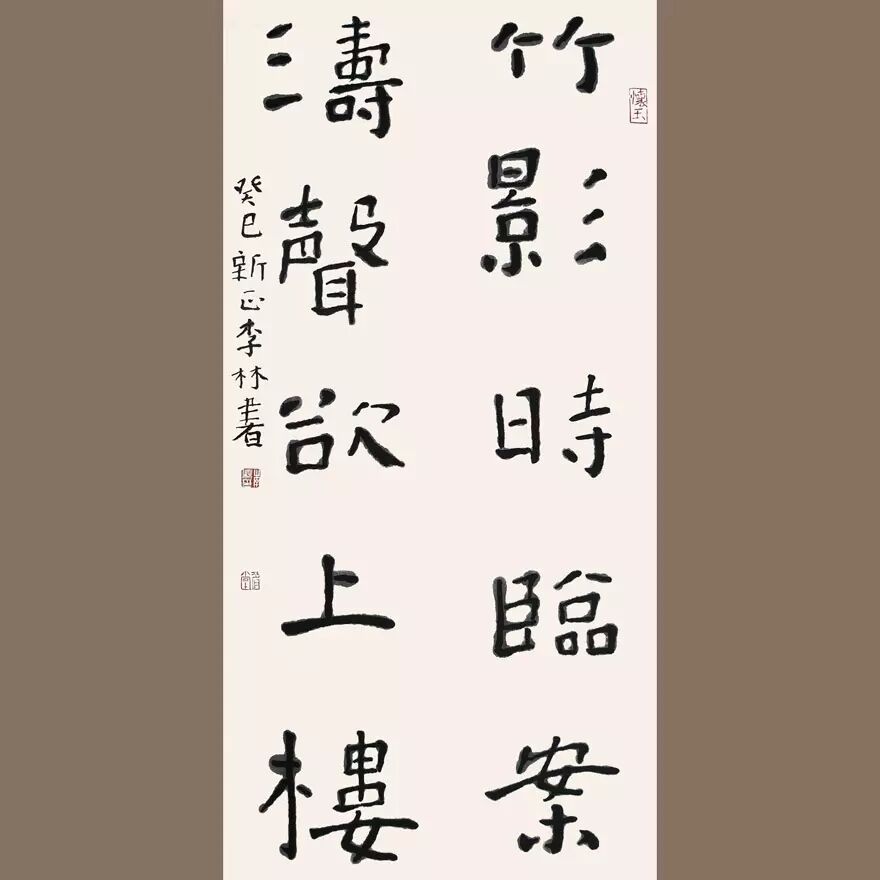 竹影時臨案
濤聲欲上樓
癸巳新正李林書
懷玉